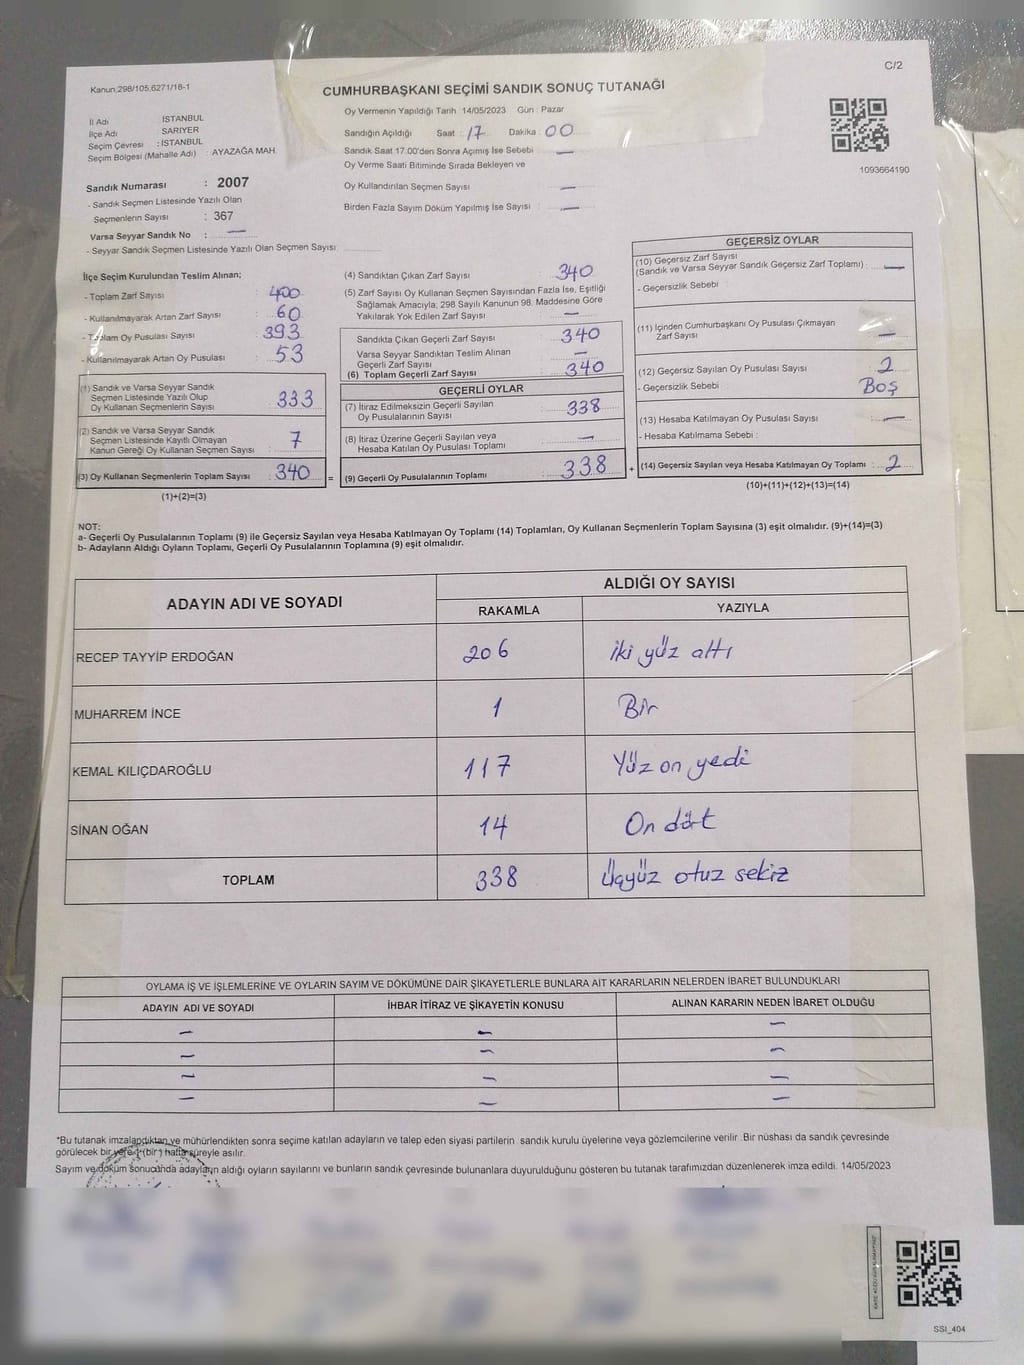 C/2
Kanun:298/105,6271/18-1
CUMHURBAŞKANI SEÇİMİ SANDIK SONUÇ TUTANAĞI
Oy Vermenin Yapıldığı Tarih 14/05/2023 Gün : Pazar
Sandığın Açıldığı Saat : 17 Dakika : 00
Sandık Saat 17.00'den Sonra Açımış İse Sebebi —
Oy Verme Saati Bitiminde Sırada Bekleyen ve
Oy Kullandırılan Seçmen Sayısı —
Birden Fazla Sayım Döküm Yapılmış İse Sayısı : —
1093664190
İl Adı İSTANBUL
İlçe Adı SARIYER
Seçim Çevresi : İSTANBUL
Seçim Bölgesi (Mahalle Adı) : AYAZAĞA MAH.
Sandık Numarası : 2007
- Sandık Seçmen Listesinde Yazılı Olan
Seçmenlerin Sayısı : 367
Varsa Seyyar Sandık No : —
- Seyyar Sandık Seçmen Listesinde Yazılı Olan Seçmen Sayısı
İlçe Seçim Kurulundan Teslim Alınan;
- Toplam Zarf Sayısı : 400
- Kullanılmayarak Artan Zarf Sayısı : 60
- Toplam Oy Pusulası Sayısı : 393
- Kullanılmayarak Artan Oy Pusulası : 53
(1) Sandık ve Varsa Seyyar Sandık
Seçmen Listesinde Yazılı Olup
Oy Kullanan Seçmenlerin Sayısı : 333
(2) Sandık ve Varsa Seyyar Sandık
Seçmen Listesinde Kayıtlı Olmayan
Kanun Gereği Oy Kullanan Seçmen Sayısı : 7
(3) Oy Kullanan Seçmenlerin Toplam Sayısı : 340 =
(1)+(2)=(3)
(4) Sandıktan Çıkan Zarf Sayısı 340
(5) Zarf Sayısı Oy Kullanan Seçmen Sayısından Fazla İse, Eşitliği
Sağlamak Amacıyla, 298 Sayılı Kanunun 98. Maddesine Göre
Yakılarak Yok Edilen Zarf Sayısı —
Sandıkta Çıkan Geçerli Zarf Sayısı 340
Varsa Seyyar Sandıktan Teslim Alınan
Geçerli Zarf Sayısı —
(6) Toplam Geçerli Zarf Sayısı 340
GEÇERLİ OYLAR
(7) İtiraz Edilmeksizin Geçerli Sayılan
Oy Pusulalarının Sayısı : 338
(8) İtiraz Üzerine Geçerli Sayılan veya
Hesaba Katılan Oy Pusulası Toplamı —
(9) Geçerli Oy Pusulalarının Toplamı 338 +
GEÇERSİZ OYLAR
(10) Geçersiz Zarf Sayısı
(Sandık ve Varsa Seyyar Sandık Geçersiz Zarf Toplamı) : —
- Geçersizlik Sebebi
(11) İçinden Cumhurbaşkanı Oy Pusulası Çıkmayan
Zarf Sayısı —
(12) Geçersiz Sayılan Oy Pusulası Sayısı 2
- Geçersizlik Sebebi Boş
(13) Hesaba Katılmayan Oy Pusulası Sayısı —
- Hesaba Katılmama Sebebi :
(14) Geçersiz Sayılan veya Hesaba Katılmayan Oy Toplamı : 2
(10)+(11)+(12)+(13)=(14)
NOT:
a- Geçerli Oy Pusulalarının Toplamı (9) ile Geçersiz Sayılan veya Hesaba Katılmayan Oy Toplamı (14) Toplamları, Oy Kullanan Seçmenlerin Toplam Sayısına (3) eşit olmalıdır. (9)+(14)=(3)
b- Adayların Aldığı Oyların Toplamı, Geçerli Oy Pusulalarının Toplamına (9) eşit olmalıdır.
ADAYIN ADI VE SOYADI
ALDIĞI OY SAYISI
RAKAMLA YAZIYLA
RECEP TAYYİP ERDOĞAN 206 iki yüz altı
MUHARREM İNCE 1 Bir
KEMAL KILIÇDAROĞLU 117 Yüz on yedi
SİNAN OĞAN 14 On dört
TOPLAM 338 Üçyüz otuz sekiz
OYLAMA İŞ VE İŞLEMLERİNE VE OYLARIN SAYIM VE DÖKÜMÜNE DAİR ŞİKAYETLERLE BUNLARA AİT KARARLARIN NELERDEN İBARET BULUNDUKLARI
ADAYIN ADI VE SOYADI İHBAR İTİRAZ VE ŞİKAYETİN KONUSU ALINAN KARARIN NEDEN İBARET OLDUĞU
— — —
— — —
— — —
— — —
*Bu tutanak imzalandıktan ve mühürlendikten sonra seçime katılan adayların ve talep eden siyasi partilerin sandık kurulu üyelerine veya gözlemcilerine verilir. Bir nüshası da sandık çevresinde
görülecek bir yere 1 (bir) hafta süreyle asılır.
Sayım ve döküm sonucunda adayların aldığı oyların sayılarını ve bunların sandık çevresinde bulunanlara duyurulduğunu gösteren bu tutanak tarafımızdan düzenlenerek imza edildi. 14/05/2023
SSI_404